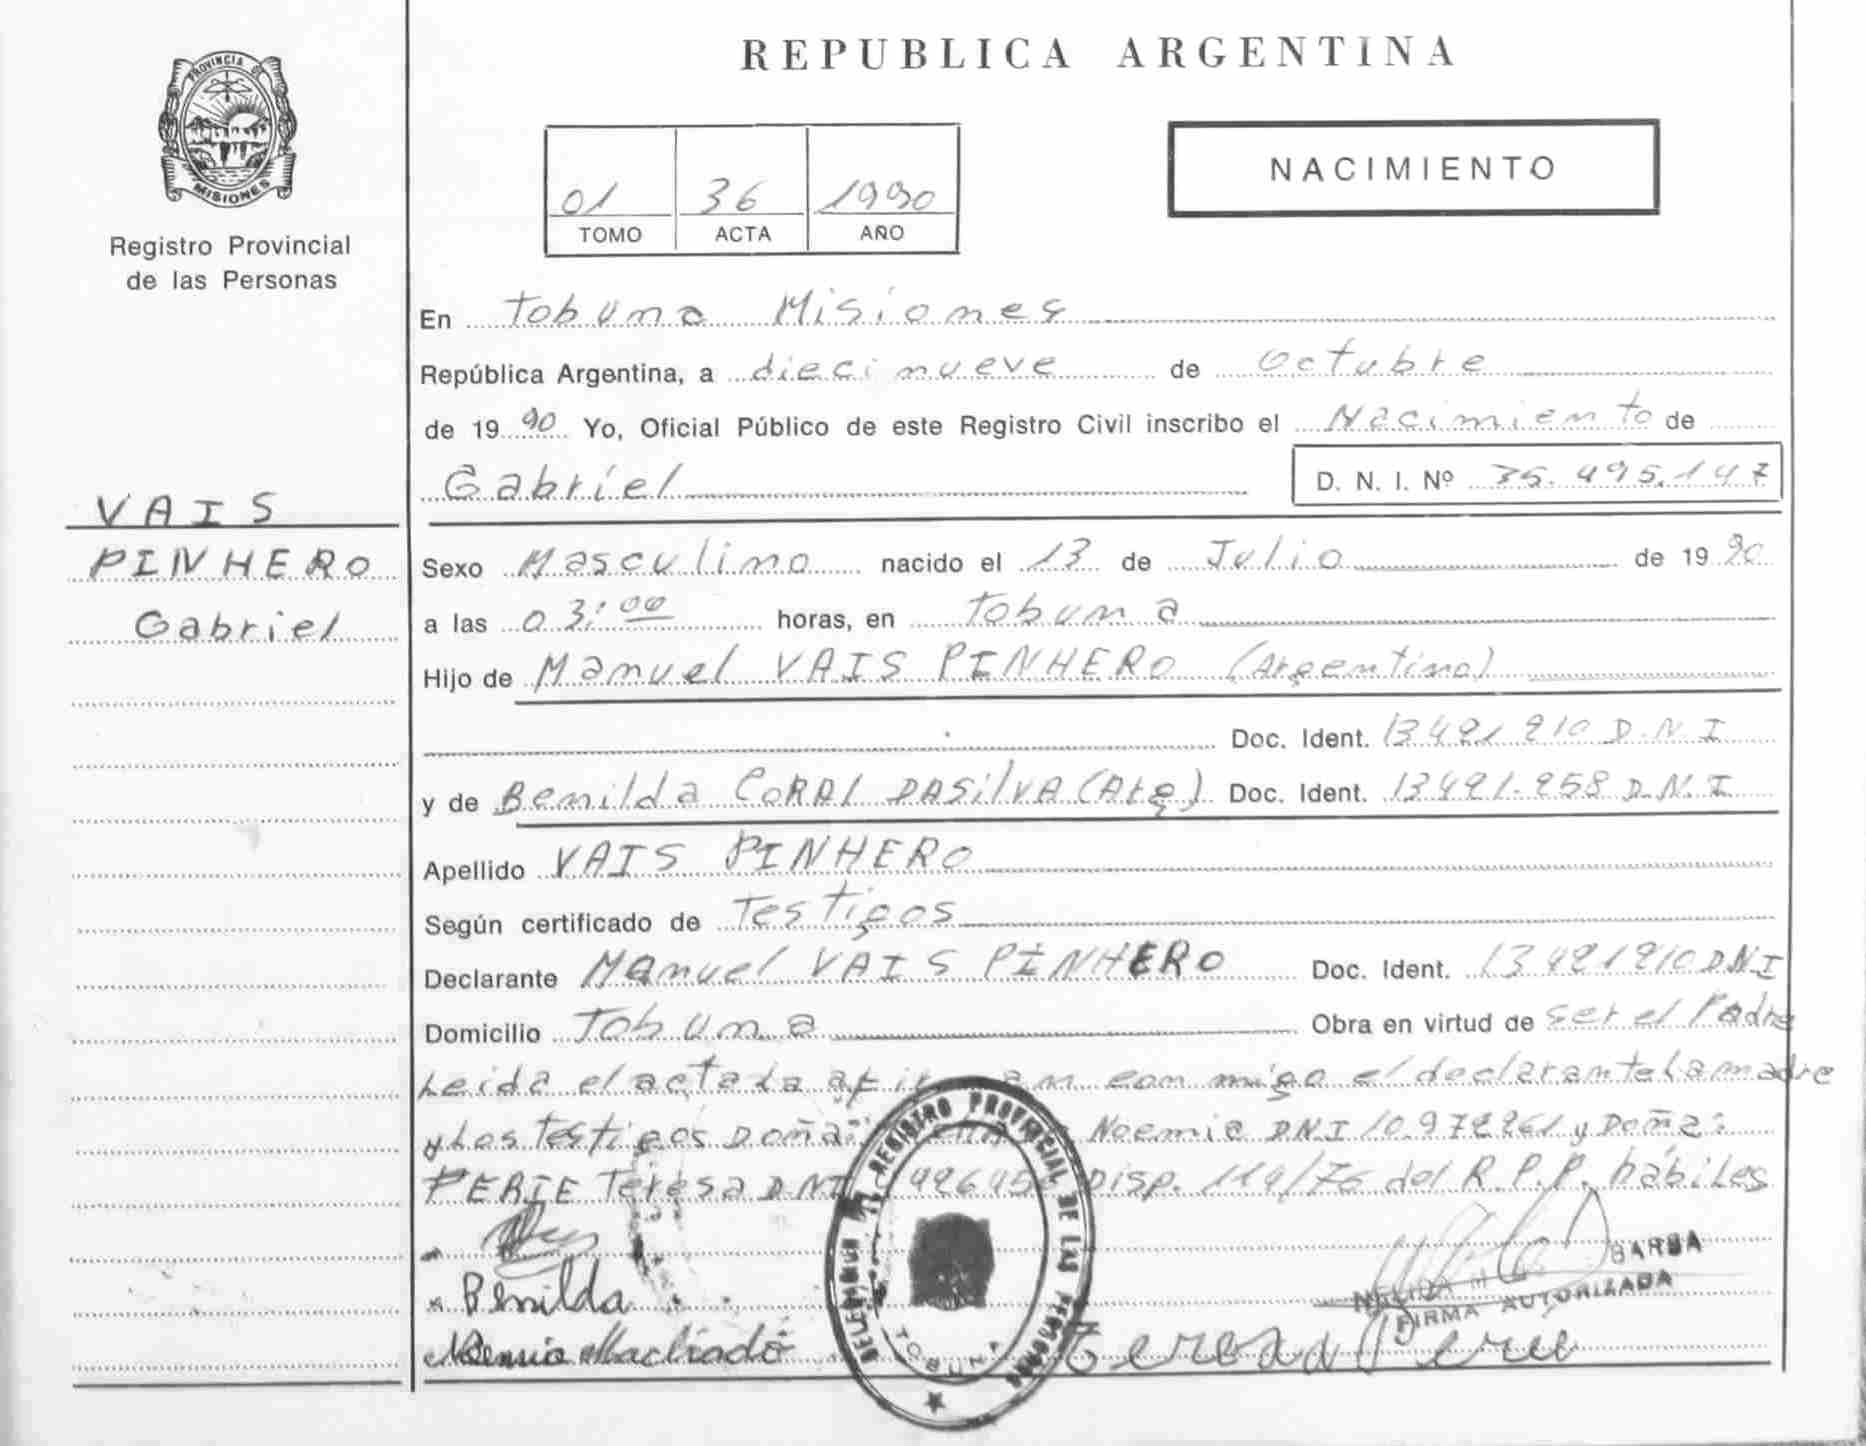 REPUBLICA ARGENTINA
PROVINCIA DE
MISIONES
Registro Provincial
de las Personas
01 36 1990
TOMO ACTA AÑO
NACIMIENTO
En Tobuna Misiones
República Argentina, a diecinueve de Octubre
de 1990 Yo, Oficial Público de este Registro Civil inscribo el Nacimiento de
Gabriel D. N. I. Nº 35.495.147
VAIS
PINHERO
Gabriel
Sexo Masculino nacido el 13 de Julio de 1990
a las 03:00 horas, en Tobuna
Hijo de Manuel VAIS PINHERO (Argentino)
Doc. Ident. D.N.I
y de Benilda CORAL DASILVA (Arg) Doc. Ident. D.N.I
Apellido VAIS PINHERO
Según certificado de Testigos
Declarante Manuel VAIS PINHERO Doc. Ident. DNI
Domicilio Tobuna Obra en virtud de ser el Padre
Leida el acta la con migo el declarante La madre
y Los testigos Doña: Noemia DNI y Doña:
Teresa DNI Disp. 119/76 del R.P.P. hábiles
BARBA
FIRMA AUTORIZADA
Benilda
Machado Teresa
REGISTRO PROVINCIAL DE LAS PERSONAS
TOBUNA